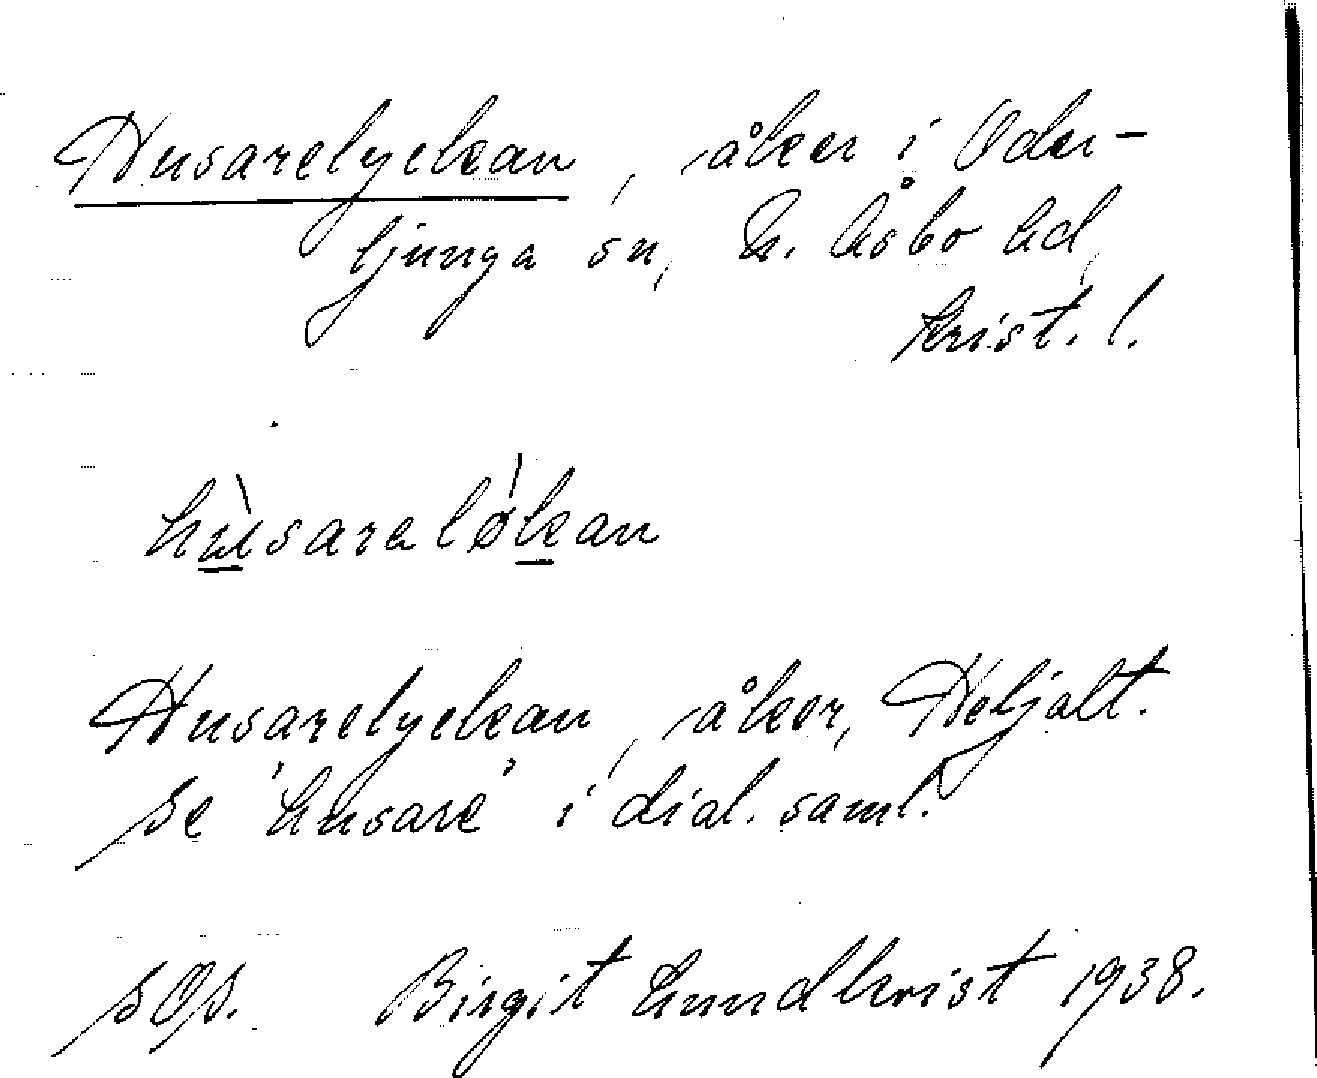 Husarelyckan, åker i Oder-
ljunga sn, N. Åsbo hd,
Krist. l.
hùsaralǿkan
Husarelyckan, åker, Höljalt.
Se 'husare' i dial. saml.
SOS. Birgit Lundkvist 1938.